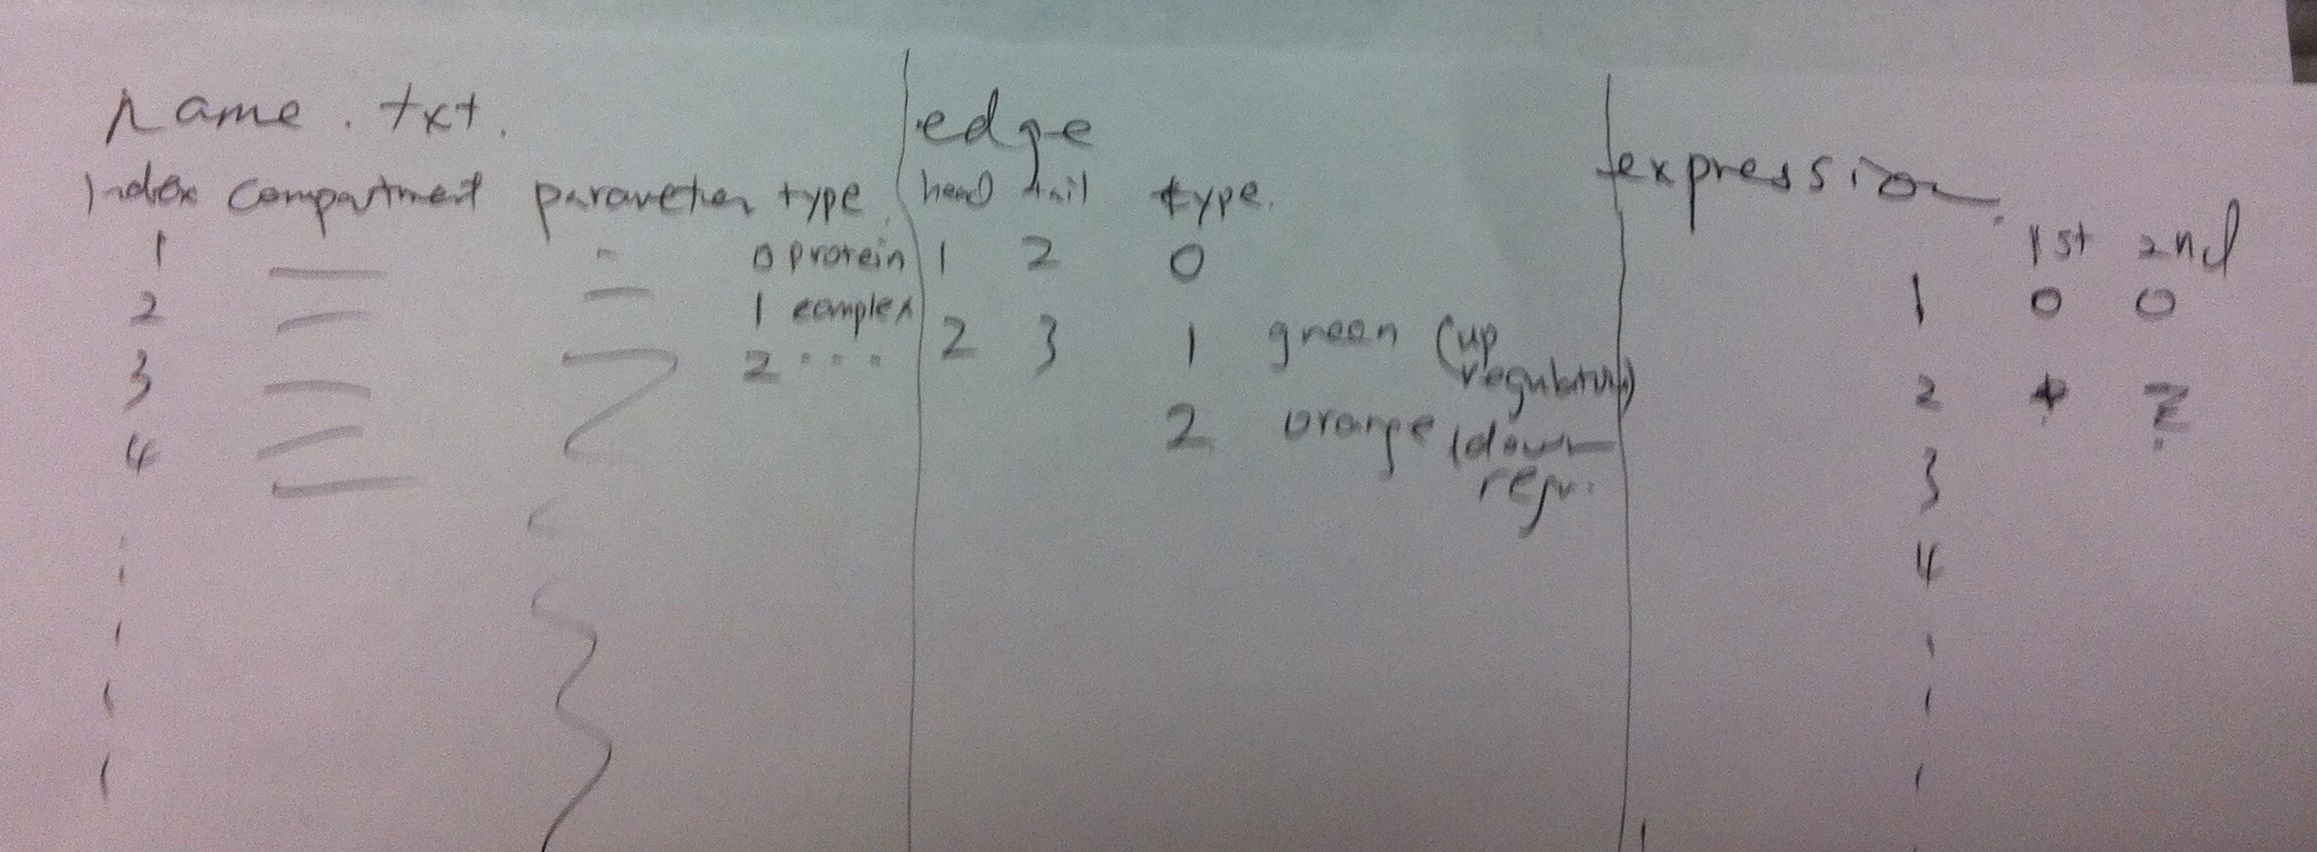 name.txt.
Index compartment parameter type
1 0 protein
2 1 complex
3 2 ...
4
edge
head tail type.
1 2 0
2 3 1 green (up regulation)
2 orange (down regu.
expression.
1st 2nd
1 0 0
2
3
4